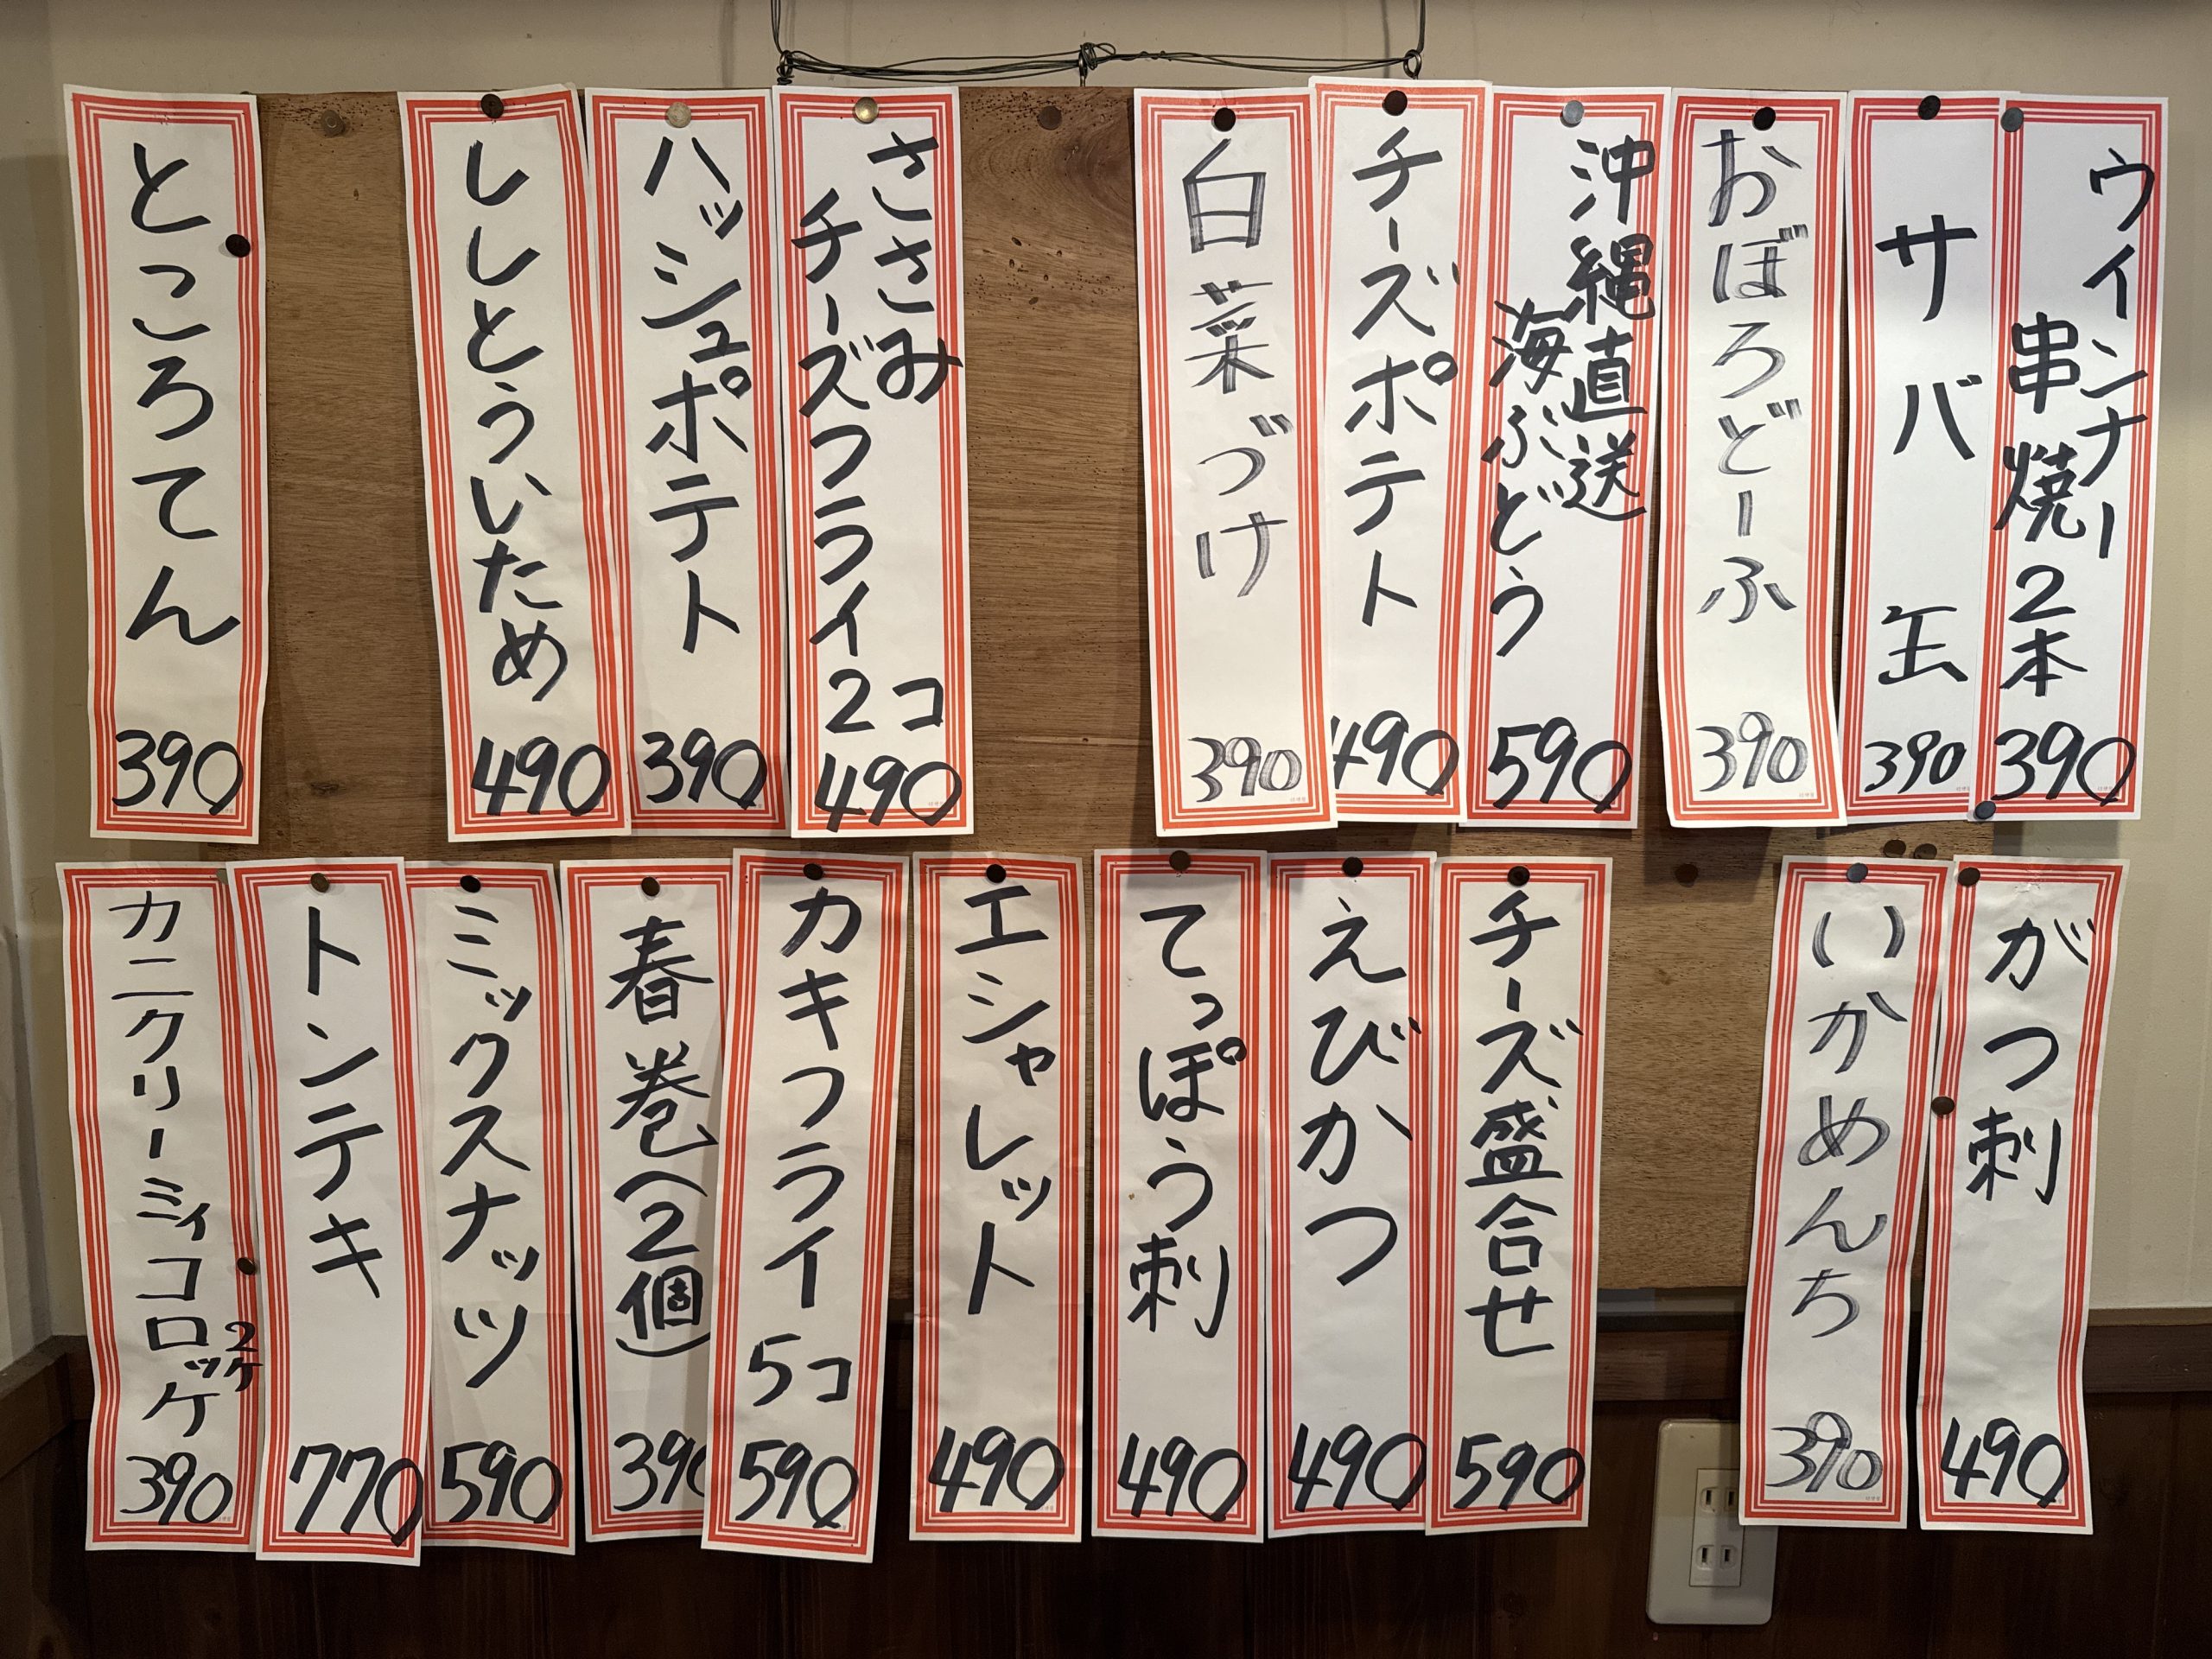 ウインナー
串焼2本
390
サバ缶
390
おぼろどーふ
390
沖縄直送
海ぶどう
590
チーズポテト
490
白菜づけ
390
ささみ
チーズフライ2コ
490
ハッシュポテト
390
ししとういため
490
ところてん
390
がつ刺
490
いかめんち
390
チーズ盛合せ
590
えびかつ
490
てっぽう刺
490
エシャレット
490
カキフライ5コ
590
春巻(2個)
390
ミックスナッツ
590
トンテキ
770
カニクリーミィコロッケ
2ケ
390